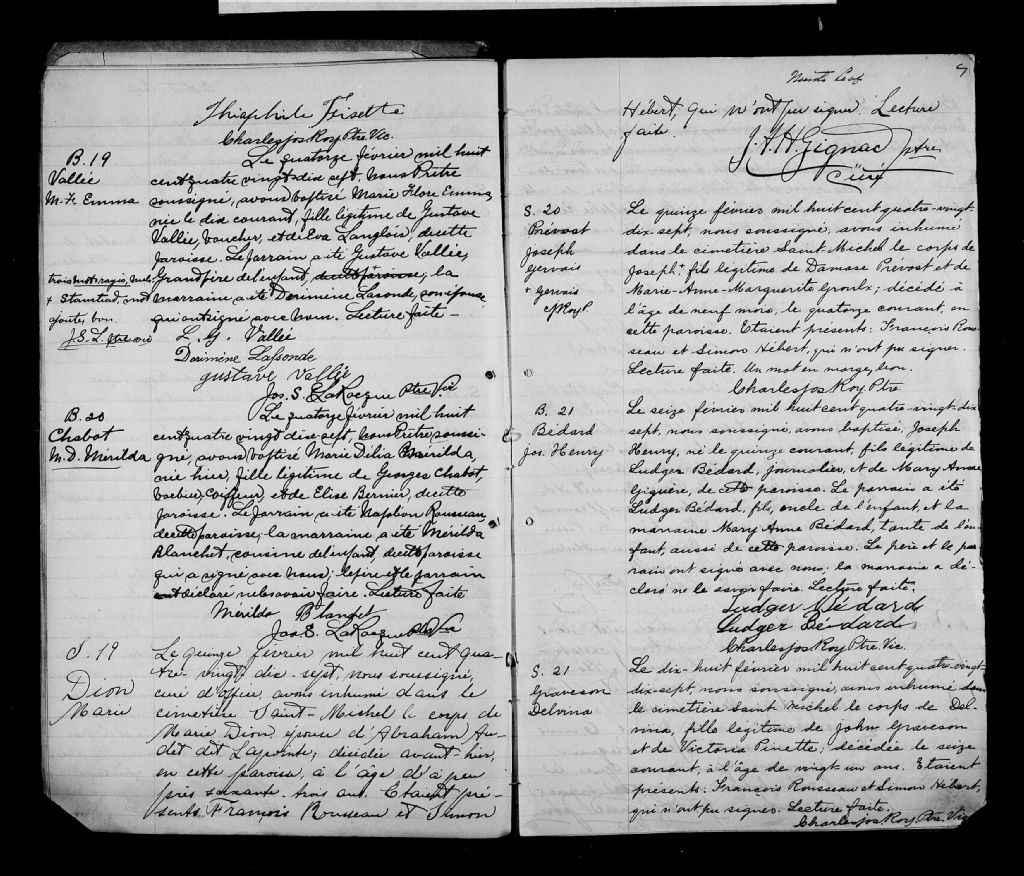 Théophile Frisette
Charles Jos Roy Ptre. Vic.
B. 19
Vallée
M. F. Emma
Le quatorze février mil huit
cent quatre vingt dix sept, nous Prêtre
soussigné, avons baptisé Marie Flore Emma,
née le dix courant, fille légitime de Gustave
Vallée, boucher, et de Eva Langlois, de cette
paroisse. Le parrain a été Gustave Vallée,
Grand père de l'enfant, de cette paroisse, la
marraine a été Dorimène Lasonde, son épouse
qui ont signé avec nous. Lecture faite -
trois mots rayés, nuls
+ Stanstead, mot
ajouté, bon.
J.S.L. Ptre vic
L. G. Vallée
Dorimène Lassonde
gustave Vallée
Jos. S. LaRocque Ptre Vic
B. 20
Chabot
M. D. Mérilda
Le quatorze février mil huit
cent quatre vingt dix sept, nous Prêtre, soussi-
gné, avons baptisé Marie Délia Mérilda,
née hier, fille légitime de Georges Chabot,
barbier, coiffeur, et de Elise Bernier, de cette
paroisse. Le parrain a été Napoléon Rousseau,
de cette paroisse; la marraine, a été Mérilda
Blanchet, cousine de l'enfant, de cette paroisse
qui a signé avec nous; le père et le parrain
ont déclaré ne le savoir faire. Lecture faite
Mérilda Blanchet
Jos S. LaRocque Ptre Vic
S. 19
Dion
Marie
Le quinze février mil huit cent qua-
tre-vingt dix-sept, nous soussigné,
curé d'office, avons inhumé dans le
cimetière Saint-Michel le corps de
Marie Dion, épouse d'Abraham Au-
dit dit Lapointe; décédée avant-hier,
en cette paroisse, à l'âge d'à peu
près soixante-trois ans. Etaient pré-
sents François Rousseau et Simon
9
Hébert, qui n'ont pu signer. Lecture
faite.
J. A. H. Gignac ptre
Curé
S. 20
Prévost
Joseph
Gervais
+ Gervais
CJ Roy P.
Le quinze février mil huit cent quatre-vingt-
dix-sept, nous soussigné, avons inhumé
dans le cimetière Saint-Michel le corps de
Joseph + fils légitime de Damase Prévost et de
Marie-Anne-Marguerite Groulx; décédé à
l'âge de neuf mois, le quatorze courant, en
cette paroisse. Etaient présents: François Rous-
seau et Simon Hébert, qui n'ont pu signer.
Lecture faite. Un mot en marge, bon.
Charles Jos Roy Ptre
B. 21
Bédard
Jos. Henry
Le seize février mil huit cent quatre-vingt-dix
sept, nous soussigné, avons baptisé, Joseph
Henry, né le quinze courant, fils légitime de
Ludger Bédard, journalier, et de Mary Anne
Giguère, de cette paroisse. Le parrain a été
Ludger Bédard, fils, oncle de l'enfant, et la
marraine Mary Anne Bédard, tante de l'en-
fant, aussi de cette paroisse. Le père et le par-
rain ont signé avec nous, la marraine a dé-
claré ne le savoir faire. Lecture faite.
Ludger Bédard
Ludger Bédard
Charles Jos Roy Ptre. Vic.
S. 21
Graveson
Delvina
Le dix-huit février mil huit cent quatre-vingt-
dix-sept, nous soussigné, avons inhumé dans
le cimetière Saint Michel le corps de Del-
vina, fille légitime de John Graveson
et de Victoria Pinette; décédée le seize
courant, à l'âge de vingt-un ans. Etaient
présents: François Rousseau et Simon Hébert,
qui n'ont pu signer. Lecture faite.
Charles Jos Roy. Ptre. Vic